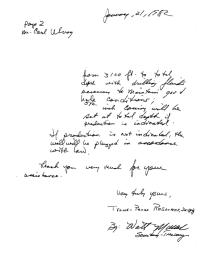 January 21, 1982
Page 2
Mr. Carl
from 3100 ft. to total
depth with drilling fluids
necessary to maintain good
hole conditions.
casing will be
set at total depth if
production is indicated.
If production is not indicated, the
well will be plugged in accordance
with law.
Thank you very much for your
assistance.
Very truly yours,
Resources
By: Walt